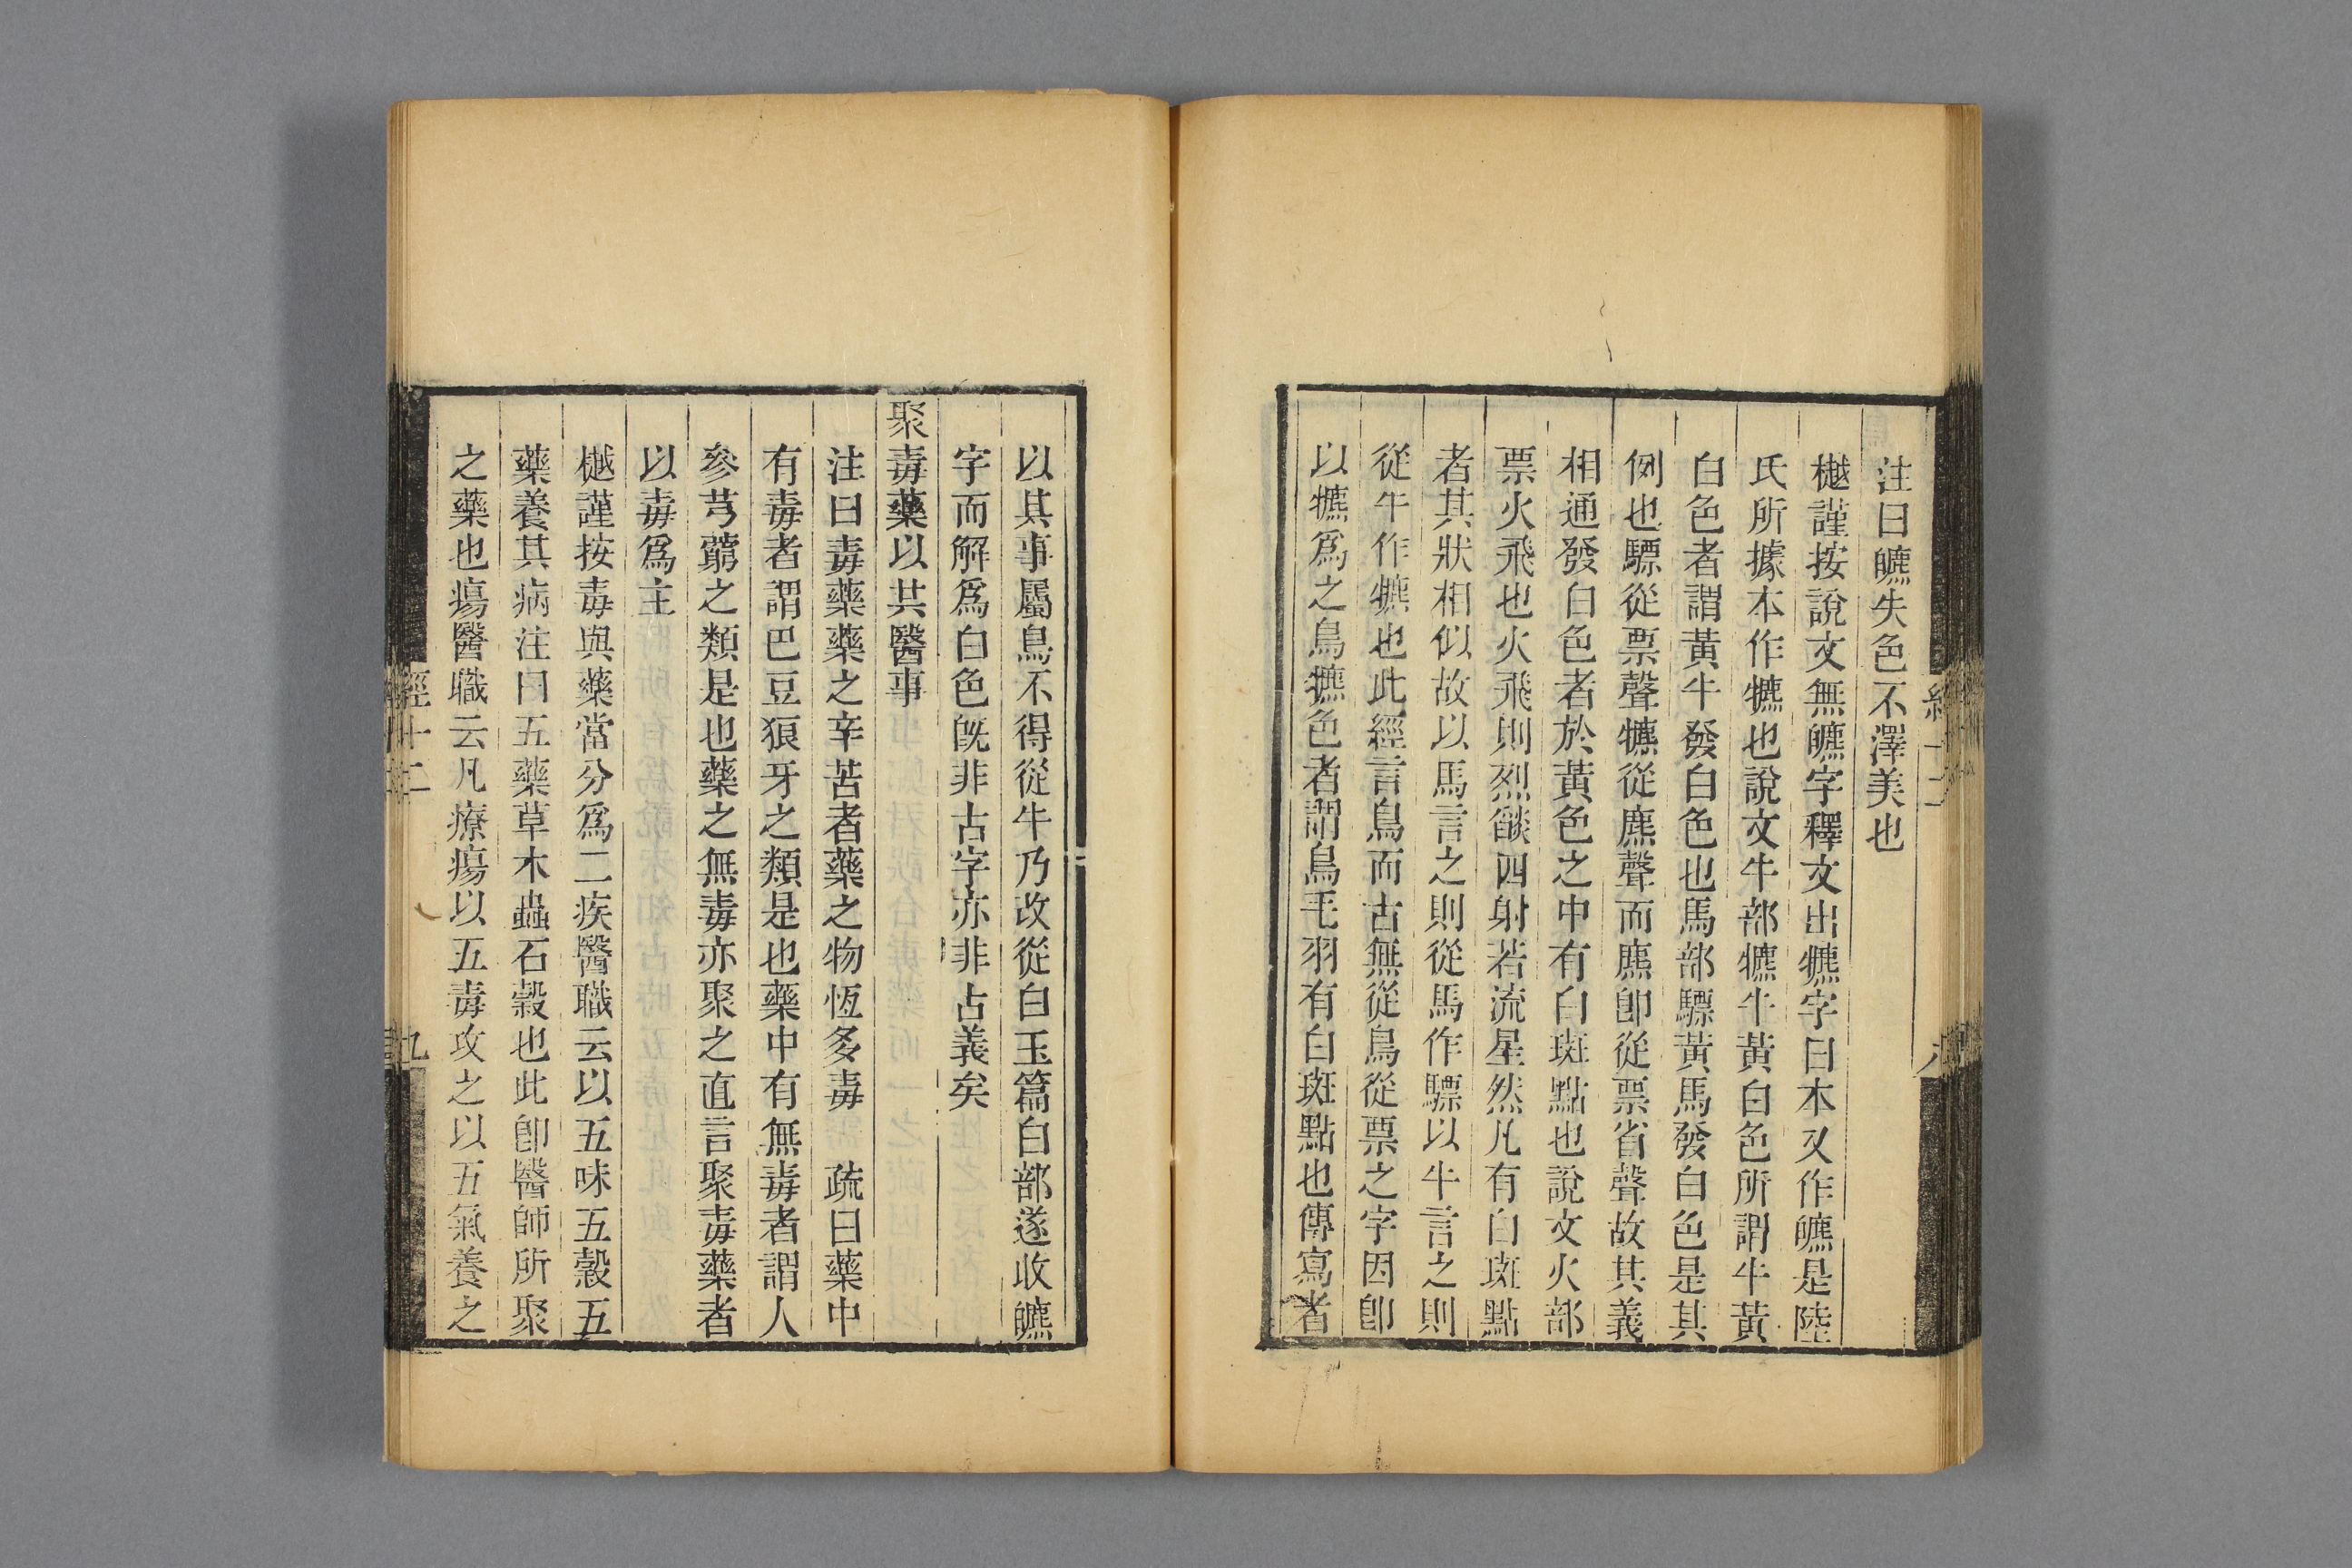 注曰皫失色不澤美也
樾謹按說文無皫字釋文出犥字曰本又作皫是陸
氏所據本作犥也說文牛部犥牛黃白色所謂牛黃
白色者謂黃牛發白色也馬部驃黃馬發白色是其
例也驃從票聲犥從麃聲而麃卽從票省聲故其義
相通發白色者於黃色之中有白斑點也說文火部
票火飛也火飛則烈燄四射若流星然凡有白斑點
者其狀相似故以馬言之則從馬作驃以牛言之則
從牛作犥也此經言鳥而古無從鳥從票之字因卽
以犥爲之鳥犥色者謂鳥毛羽有白斑點也傳寫者
以其事屬鳥不得從牛乃改從白玉篇白部遂收皫
字而解爲白色旣非古字亦非古義矣
聚毒藥以共醫事
注曰毒藥藥之辛苦者藥之物恆多毒 疏曰藥中
有毒者謂巴豆狼牙之類是也藥中有無毒者謂人
參芎藭之類是也藥之無毒亦聚之直言聚毒藥者
以毒爲主
樾謹按毒與藥當分爲二疾醫職云以五味五穀五
藥養其病注曰五藥草木蟲石穀也此卽醫師所聚
之藥也瘍醫職云凡療瘍以五毒攻之以五氣養之
經十二
九